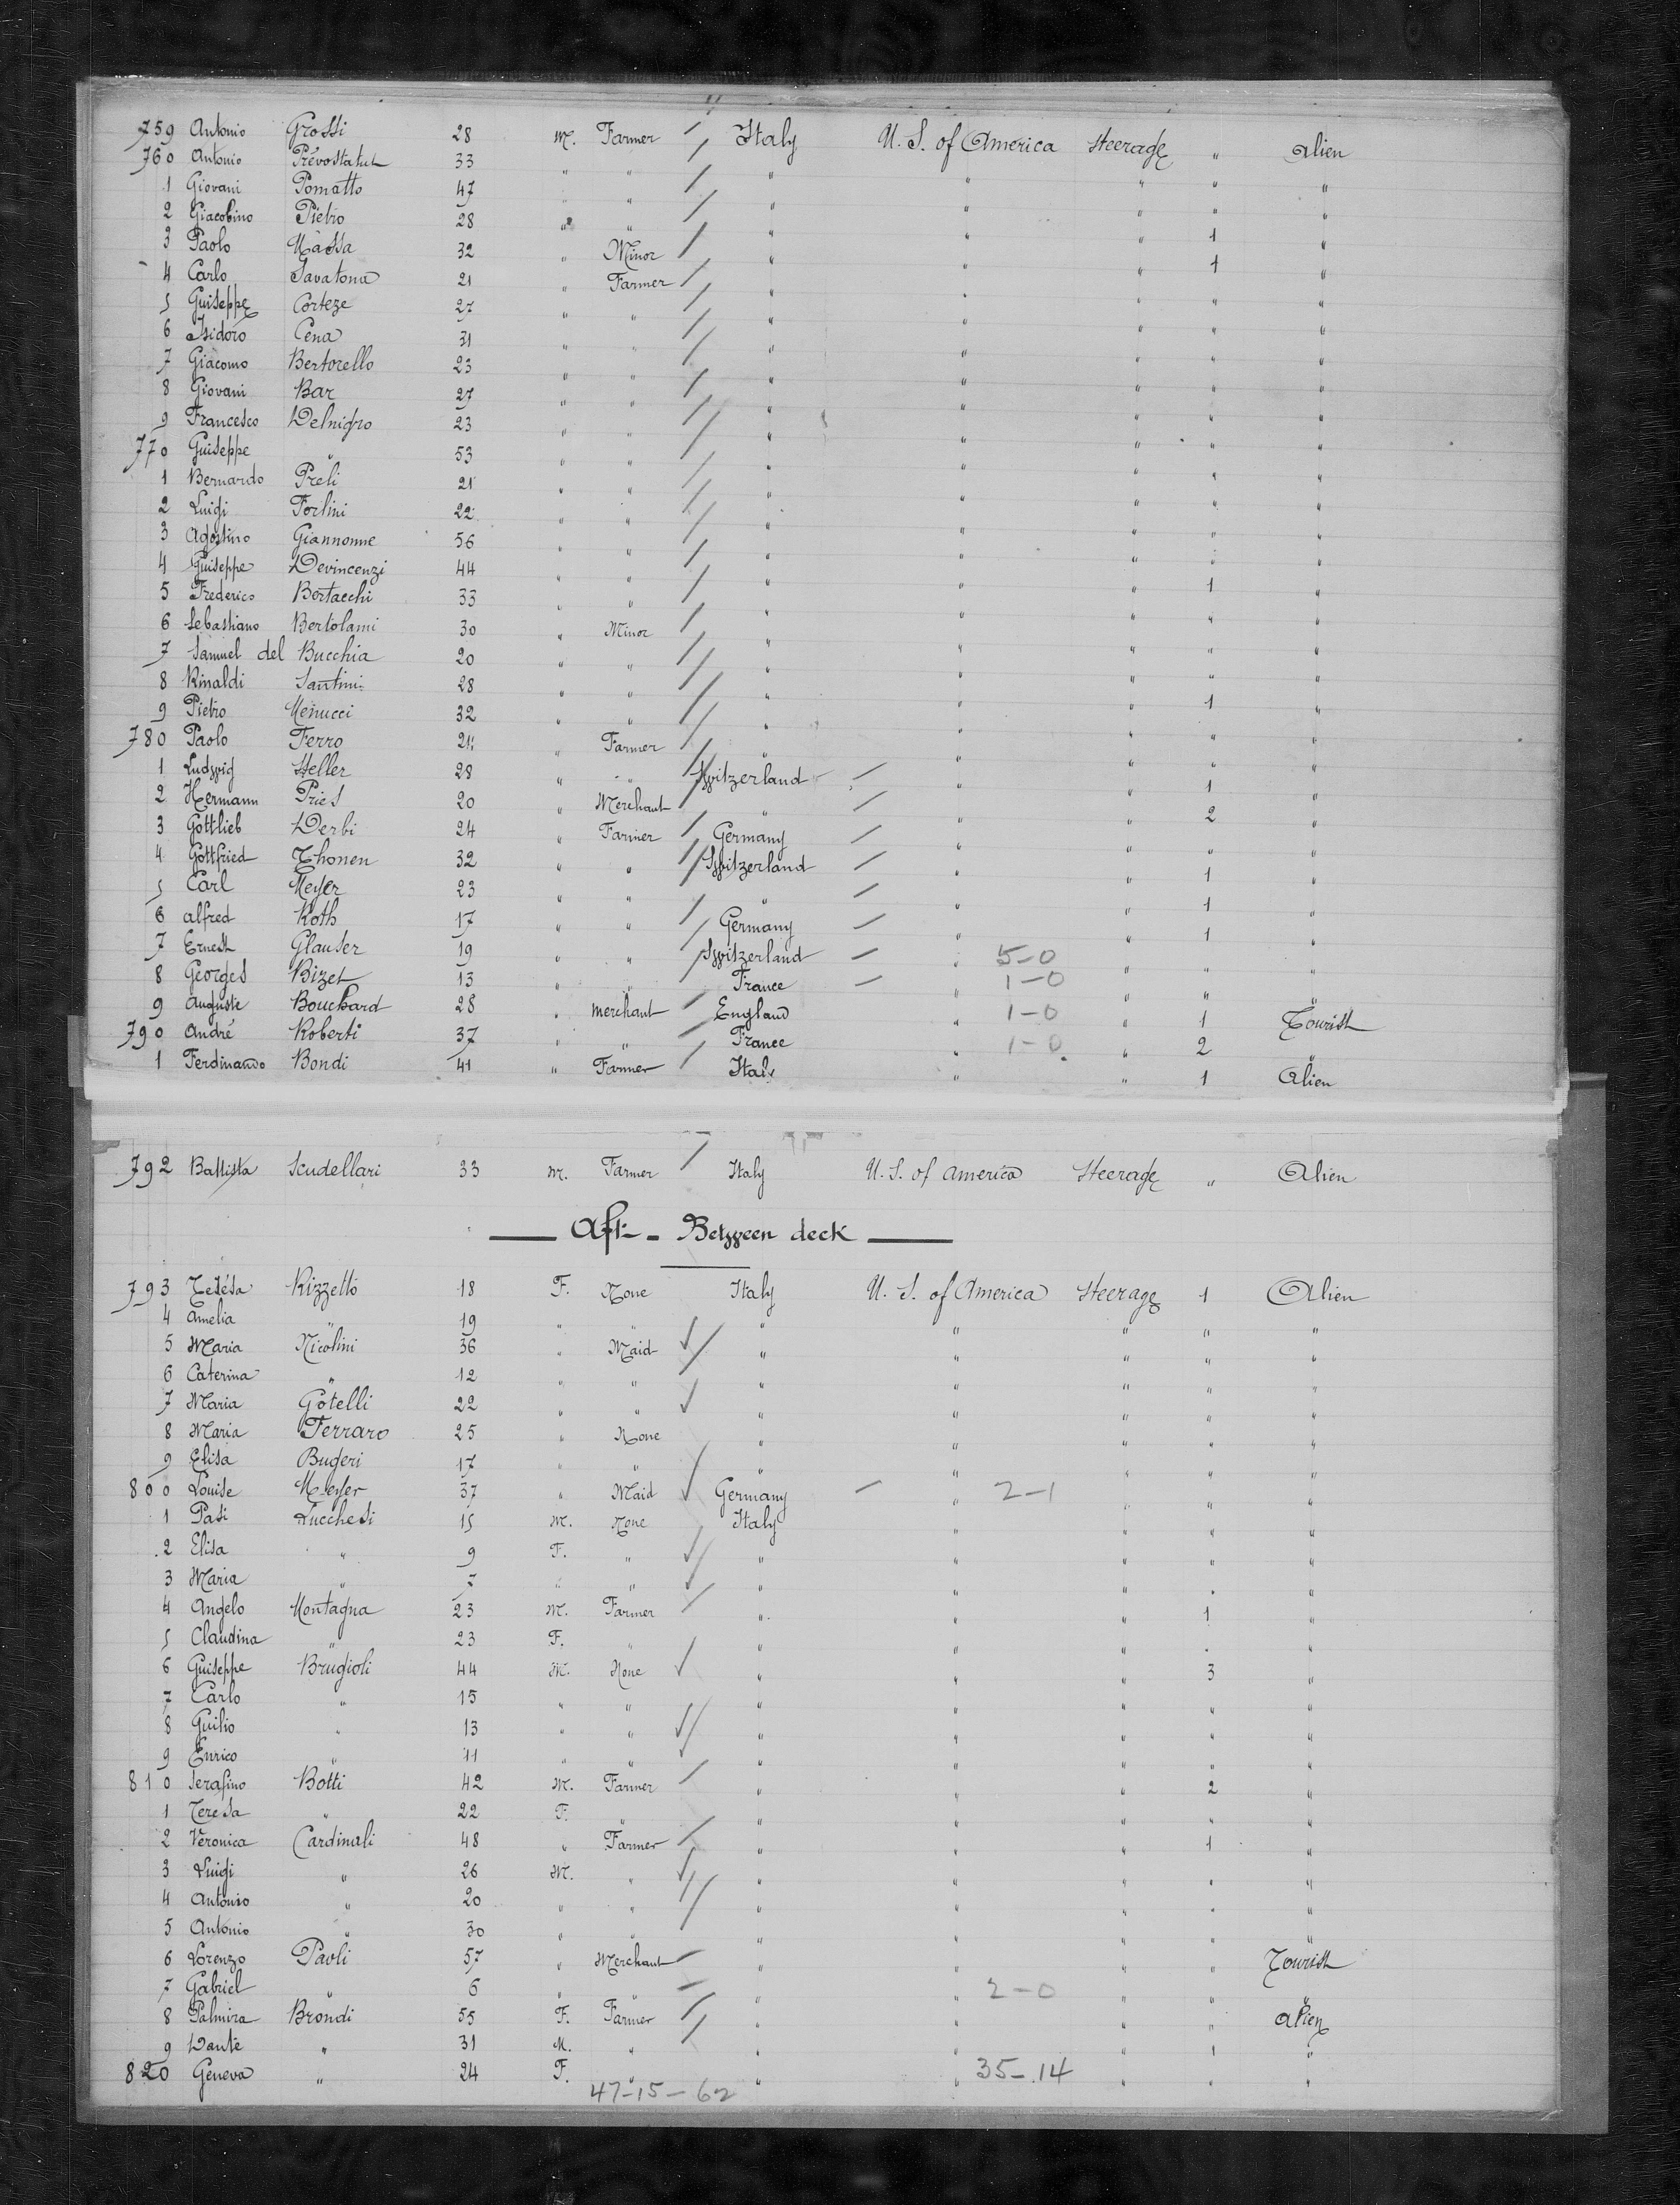 "
759 Antonio Grossi 28 M. Farmer / Italy U. S. of America Steerage " Alien
760 Antonio Prévostatut 33 " " / " " " " "
1 Giovani Pomatto 47 " " / " " " " "
2 Giacobino Pietro 28 " " / " " " 1 "
3 Paolo Massa 32 " Minor / " " " 1 "
4 Carlo Savatona 21 " Farmer / " " " " "
5 Guiseppe Corteze 27 " " / " " " " "
6 Isidoro Cena 31 " " / " " " " "
7 Giacomo Bertorello 23 " " / " " " " "
8 Giovani Bar 27 " " / " " " " "
9 Francesco Delnigro 23 " " / " " " " "
770 Guiseppe " 53 " " / " " " " "
1 Bernardo Preli 21 " " / " " " " "
2 Luigi Forlini 22 " " / " " " " "
3 Agostino Giannonne 56 " " / " " " " "
4 Guiseppe Devincenzi 44 " " / " " " 1 "
5 Frederico Bertacchi 33 " " / " " " " "
6 Sebastiano Bertolami 30 " Minor / " " " " "
7 Samuel del Bucchia 20 " " / " " " " "
8 Rinaldi Santini 28 " " / " " " 1 "
9 Pietro Menucci 32 " " / " " " " "
780 Paolo Ferro 24 " Farmer / " " " " "
1 Ludwig Heller 28 " " / Switzerland / " " 1 "
2 Hermann Pries 20 " Merchant / " / " " 2 "
3 Gottlieb Derbi 24 " Farmer / Germany / " " " "
4 Gottfried Thonen 32 " " / Switzerland / " " 1 "
5 Carl Meyer 23 " " / " / " " 1 "
6 Alfred Roth 17 " " / Germany / " " 1 "
7 Ernest Glauser 19 " " / Switzerland / " 5-0 " " "
8 Georges Bizet 13 " " / France / " 1-0 " " "
9 Auguste Bouchard 28 " Merchant / England " 1-0 " 1 Tourist
790 André Roberti 37 " " / France " 1-0 " 2 "
1 Ferdinando Bondi 41 " Farmer / Italy " " 1 Alien
792 Battista Scudellari 33 M. Farmer / Italy U. S. of America Steerage " Alien
Aft - Between deck
793 Teresa Rizzetto 18 F. None Italy U. S. of America Steerage 1 Alien
4 Amelia " 19 " " " " " " "
5 Maria Nicolini 36 " Maid " " " " "
6 Caterina " 12 " " " " " " "
7 Maria Gotelli 22 " " " " " " "
8 Maria Ferraro 25 " None " " " " "
9 Elisa Bugeri 17 " " " " " " "
800 Louise Meyer 37 " Maid Germany / " 2-1 " " "
1 Pasi Lucchesi 15 M. None Italy " " " "
2 Elisa " 9 F. " " " " " "
3 Maria " 7 " " " " " " "
4 Angelo Montagna 23 M. Farmer " " " 1 "
5 Claudina " 23 F. " " " " " "
6 Guiseppe Brugioli 44 M. None " " " 3 "
7 Carlo " 15 " " " " " " "
8 Guilio " 13 " " " " " " "
9 Enrico " 11 " " " " " " "
810 Serafino Botti 42 M. Farmer " " " 2 "
1 Teresa " 22 F. " " " " " "
2 Veronica Cardinali 48 " Farmer " " " 1 "
3 Luigi " 26 M. " " " " " "
4 Antonio " 20 " " " " " " "
5 Antonio " 30 " " " " " " "
6 Lorenzo Paoli 57 " Merchant " " " " Tourist
7 Gabriel " 6 " " " " 2-0 " " "
8 Palmira Brondi 55 F. Farmer " " " " Alien
9 Dante " 31 M. " " " " 1 "
820 Geneva " 24 F. " " " 35-14 " " "
47-15-62